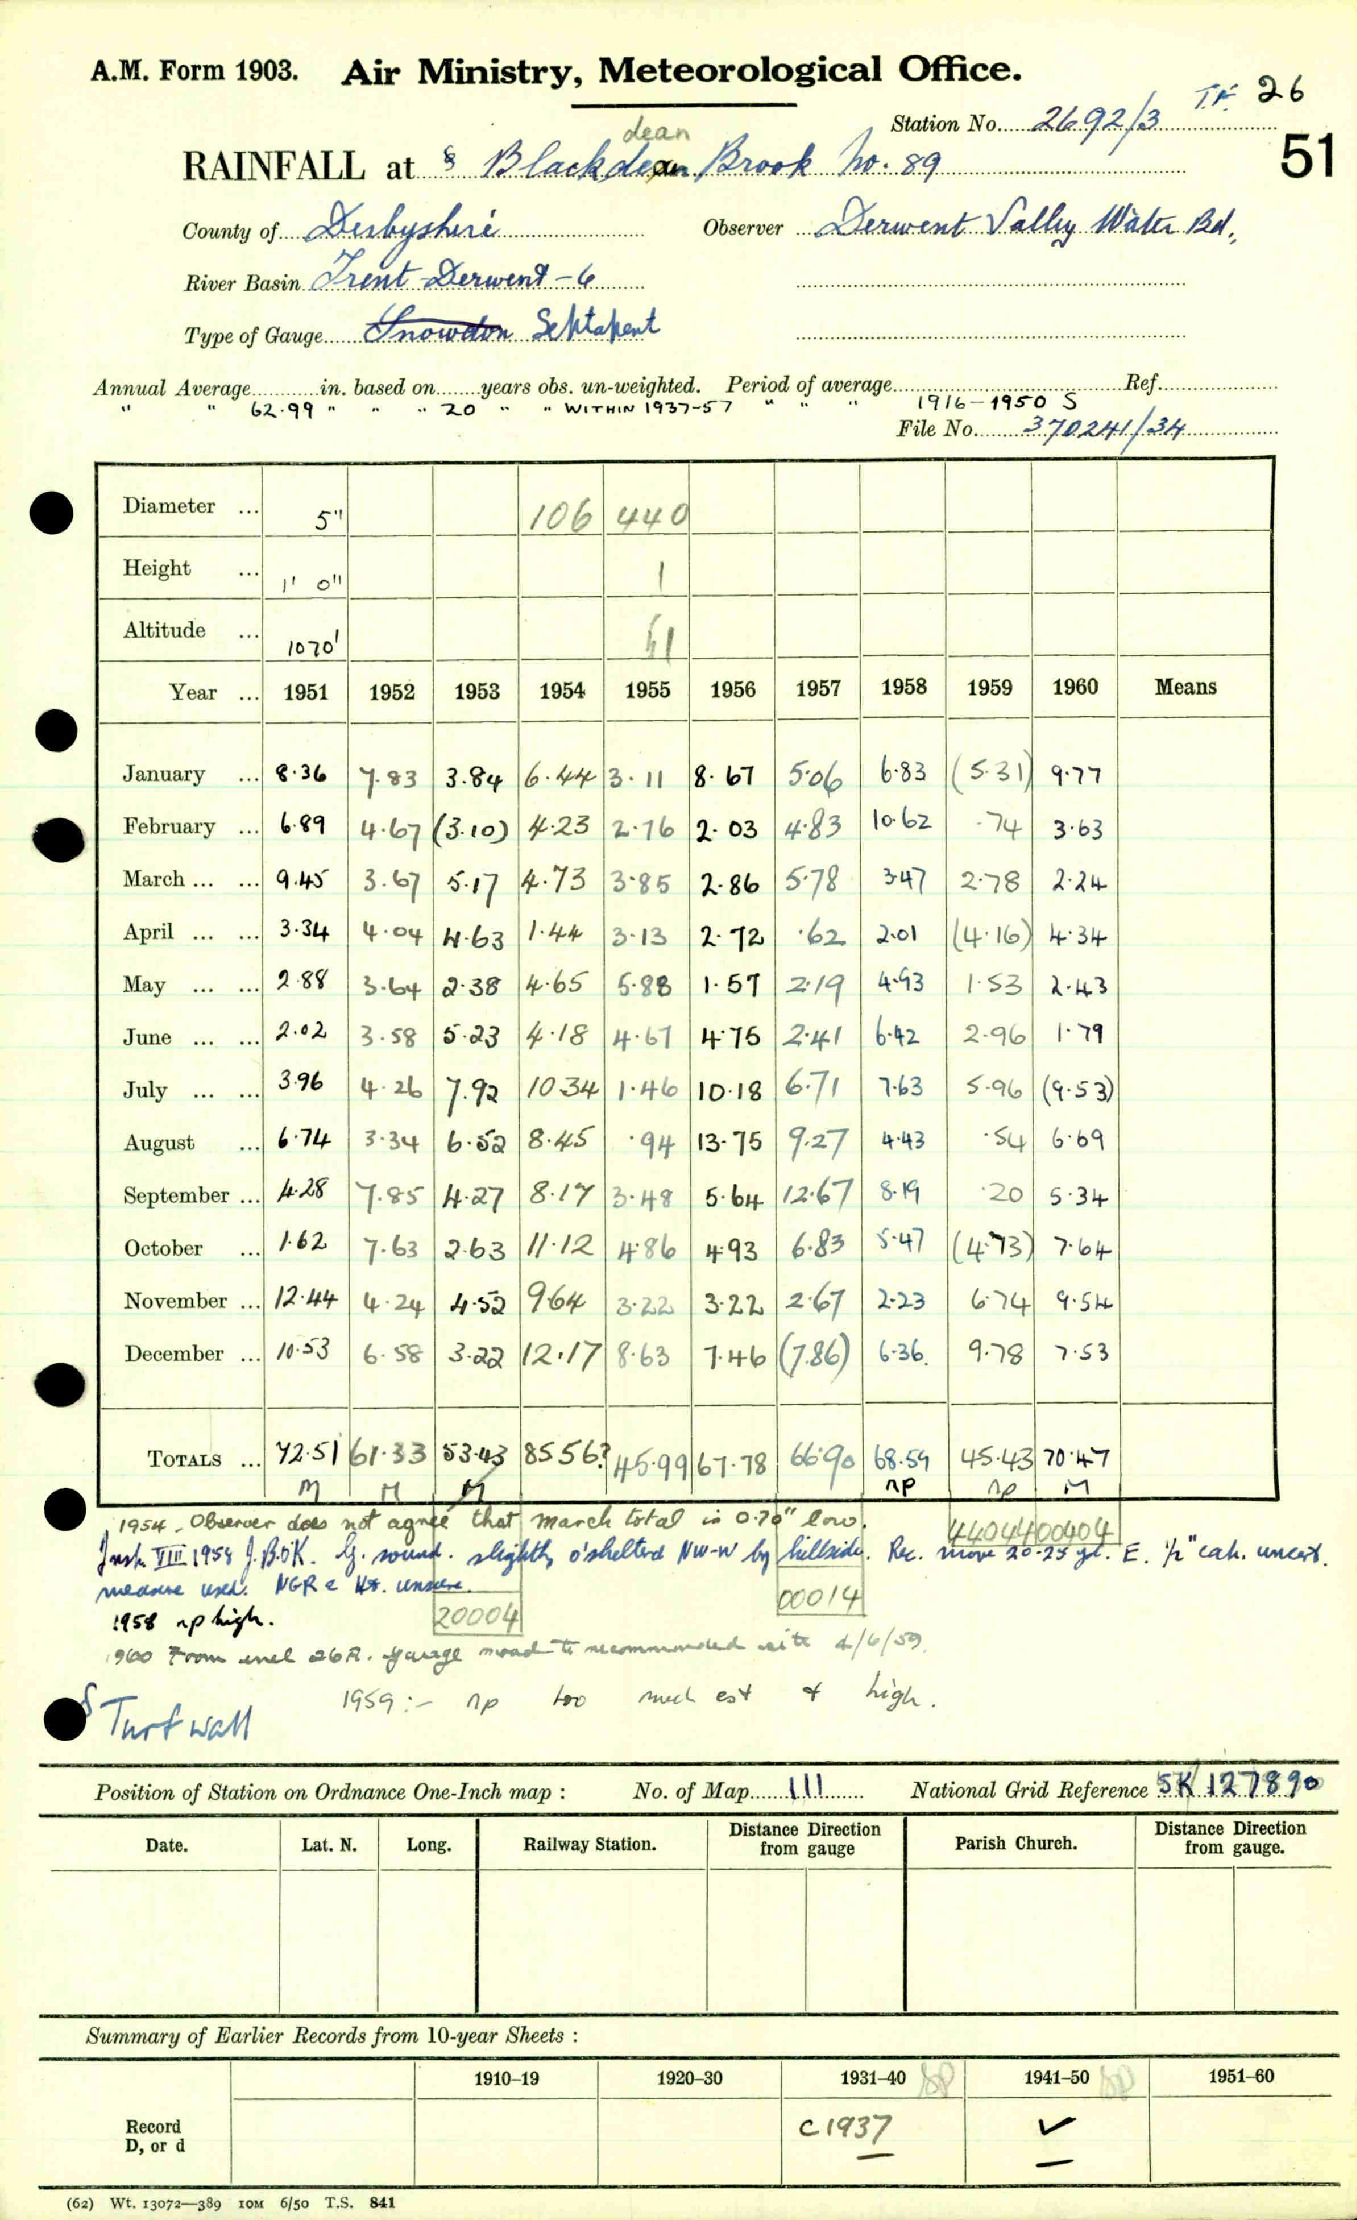 A.M. Form 1903. Air Ministry, Meteorological Office.
T.F. 26
Station No. 2692/3
51
dean
RAINFALL at § Blackden Brook No. 89
County of Derbyshire Observer Derwent Valley Water Bd.
River Basin Trent-Derwent-6
Type of Gauge Snowdon Septapent
Annual Average in. based on years obs. un-weighted. Period of average Ref.
" " 62.99 " " " 20 " " WITHIN 1937-57 " " " 1916-1950 S
File No. 370241/34
Diameter ... 5" 106 440
Height ... 1' 0" 1
Altitude ... 1070'
Year ... 1951 1952 1953 1954 1955 1956 1957 1958 1959 1960 Means
January ... 8.36 7.83 3.84 6.44 3.11 8.67 5.06 6.83 (5.31) 9.77
February ... 6.89 4.67 (3.10) 4.23 2.76 2.03 4.83 10.62 .74 3.63
March ... ... 9.45 3.67 5.17 4.73 3.85 2.86 5.78 3.47 2.78 2.24
April ... ... 3.34 4.04 4.63 1.44 3.13 2.72 .62 2.01 (4.16) 4.34
May ... ... 2.88 3.64 2.38 4.65 5.88 1.57 2.19 4.93 1.53 2.43
June ... ... 2.02 3.58 5.23 4.18 4.67 4.75 2.41 6.42 2.96 1.79
July ... ... 3.96 4.26 7.92 10.34 1.46 10.18 6.71 7.63 5.96 (9.53)
August ... 6.74 3.34 6.52 8.45 .94 13.75 9.27 4.43 .54 6.69
September ... 4.28 7.85 4.27 8.17 3.48 5.64 12.67 8.19 .20 5.34
October ... 1.62 7.63 2.63 11.12 4.86 4.93 6.83 5.47 (4.73) 7.64
November ... 12.44 4.24 4.52 9.64 3.22 3.22 2.67 2.23 6.74 9.54
December ... 10.53 6.58 3.22 12.17 8.63 7.46 (7.86) 6.36 9.78 7.53
TOTALS ... 72.51 61.33 53.43 85.56? 45.99 67.78 66.90 68.59 45.43 70.47
M M M np np M
1954 - Observer does not agree that March total is 0.70" low.
4404400404
Insp. VIII 1958 J.B. OK. G. sound. slightly o'sheltered NW-W by hillside. Rec. move 20-25 yd. E. ½" cap. uncert.
measure used. NGR & Ht. unsure.
00014
20004
1958 np high.
1960 From encl 26A. gauge moved to recommended site 4/6/59.
1959:- np too much est & high.
§ Turf wall
Position of Station on Ordnance One-Inch map : No. of Map 111 National Grid Reference SK 127890
Date. Lat. N. Long. Railway Station. Distance Direction from gauge Parish Church. Distance Direction from gauge.
Summary of Earlier Records from 10-year Sheets :
1910-19 1920-30 1931-40 SP 1941-50 SP 1951-60
Record D, or d C1937 ✓
(62) Wt. 13072—389 10M 6/50 T.S. 841